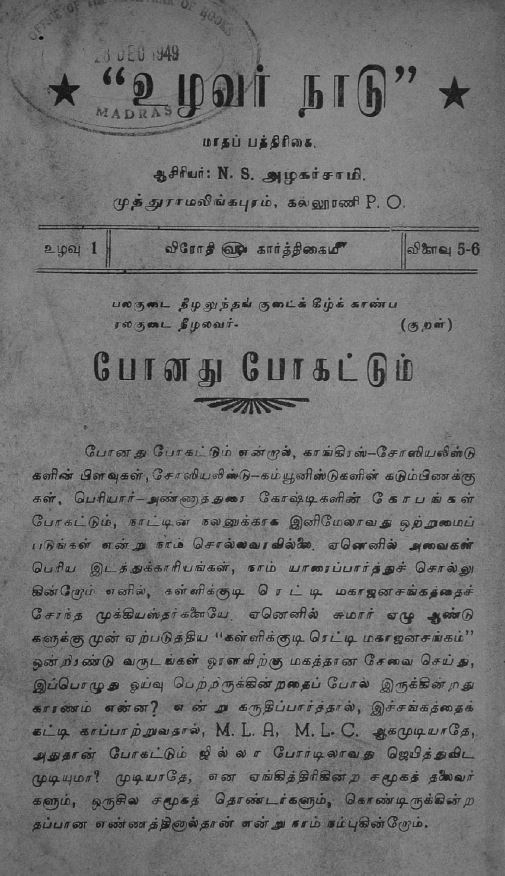 OFFICE OF THE REGISTRAR OF BOOKS
23 DEC 1949
MADRAS
★ “உழவர் நாடு” ★
மாதப் பத்திரிகை.
ஆசிரியர்: N. S. அழகர்சாமி.
முத்துராமலிங்கபுரம், கல்லூரணி P. O.
உழவு 1 விரோதி ௵ கார்த்திகை௴ விளைவு 5-6
பலகுடை நீழலுந்தங் குடைக் கீழ்க் காண்ப
ரலகுடை நீழலவர். (குறள்)
போனது போகட்டும்
போனது போகட்டும் என்றால், காங்கிரஸ்—சோஸியலிஸ்டு
களின் பிளவுகள், சோஸியலிஸ்டு—கம்யூனிஸ்டுகளின் கடும்பிணக்கு
கள், பெரியார்—அண்ணாத்துரை கோஷ்டிகளின் கோபங்கள்
போகட்டும், நாட்டின் நலனுக்காக இனிமேலாவது ஒற்றுமைப்
படுங்கள் என்று நாம் சொல்லவரவில்லை. ஏனெனில் அவைகள்
பெரிய இடத்துக்காரியங்கள், நாம் யாரைப்பார்த்துச் சொல்லு
கின்றோம் எனில், கள்ளிக்குடி ரெட்டி மகாஜனசங்கத்தைச்
சேர்ந்த முக்கியஸ்தர்களையே. ஏனெனில் சுமார் ஏழு ஆண்டு
களுக்குமுன் ஏற்படுத்திய “கள்ளிக்குடி ரெட்டி மகாஜனசங்கம்”
ஒன்றிரண்டு வருடங்கள் ஓரளவிற்கு மகத்தான சேவை செய்து,
இப்பொழுது ஓய்வு பெற்றிருக்கின்றதைப் போல் இருக்கின்றது
காரணம் என்ன? என்று கருதிப்பார்த்தால், இச்சங்கத்தைக்
கட்டி காப்பாற்றுவதால், M. L. A, M. L. C. ஆகமுடியாதே,
அதுதான் போகட்டும் ஜில்லா போர்டிலாவது ஜெபித்துவிட
முடியுமா? முடியாதே, என ஏங்கித்திரிகின்ற சமூகத் தலைவர்
களும், ஒருசில சமூகத் தொண்டர்களும், கொண்டிருக்கின்ற
தப்பான எண்ணத்தினால்தான் என்று நாம் நம்புகின்றோம்.